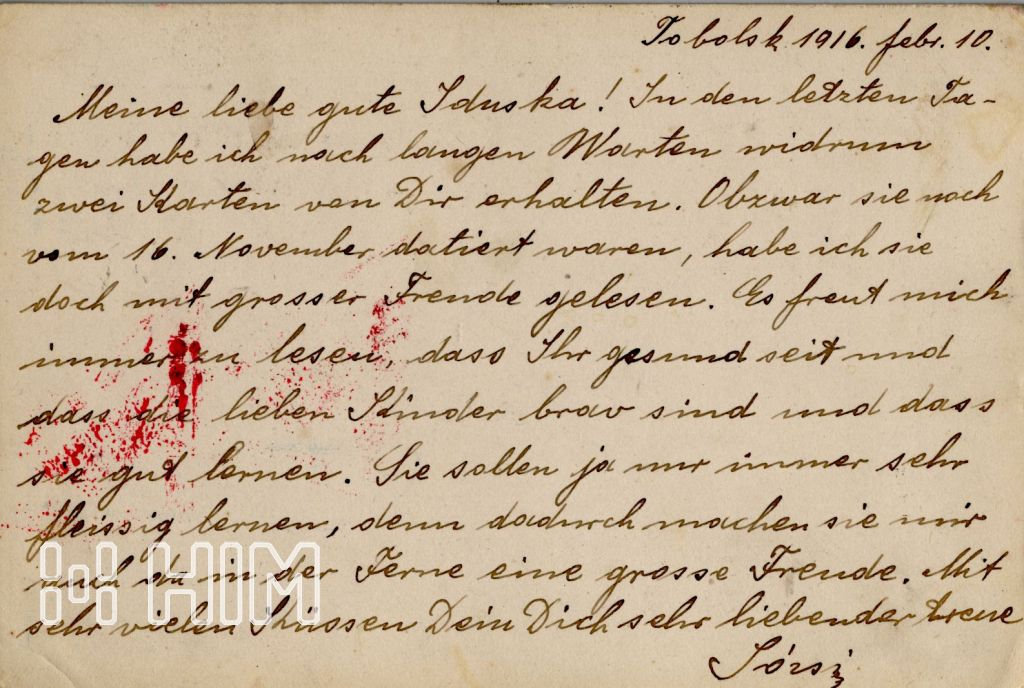 Tobolsk 1916. febr. 10.
Meine liebe gute Iduska! In den letzten Ta-
gen habe ich nach langen Warten widrum
zwei Karten von Dir erhalten. Obzwar sie noch
vom 16. November datiert waren, habe ich sie
doch mit grosser Freude gelesen. Es freut mich
immer zu lesen, dass Ihr gesund seit und
dass die lieben Kinder brav sind und dass
sie gut lernen. Sie sollen ja nur immer sehr
fleissig lernen, denn dadurch machen sie mir
auch da in der Ferne eine grosse Freude. Mit
sehr vielen Küssen Dein Dich sehr liebender treue
HIM